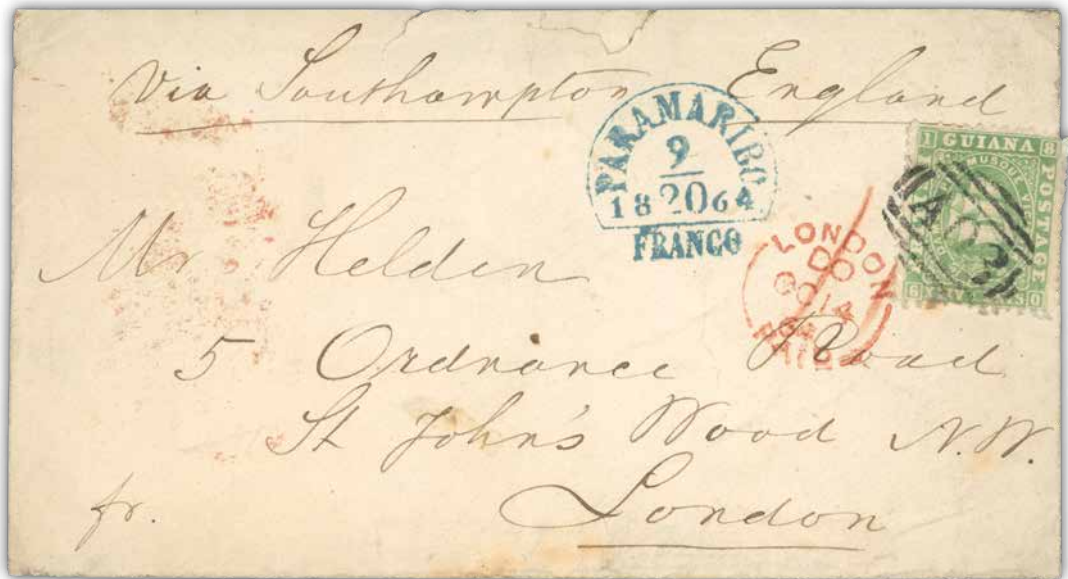 Via Southampton England
PARAMARIBO
9
18 20 64
FRANCO
1 GUIANA 8
POSTAGE
6 0
A03
LONDON
DO
OC 14
64
PAID
Mr Helden
5 Ordnance Road
St John's Wood N.W.
fr. London